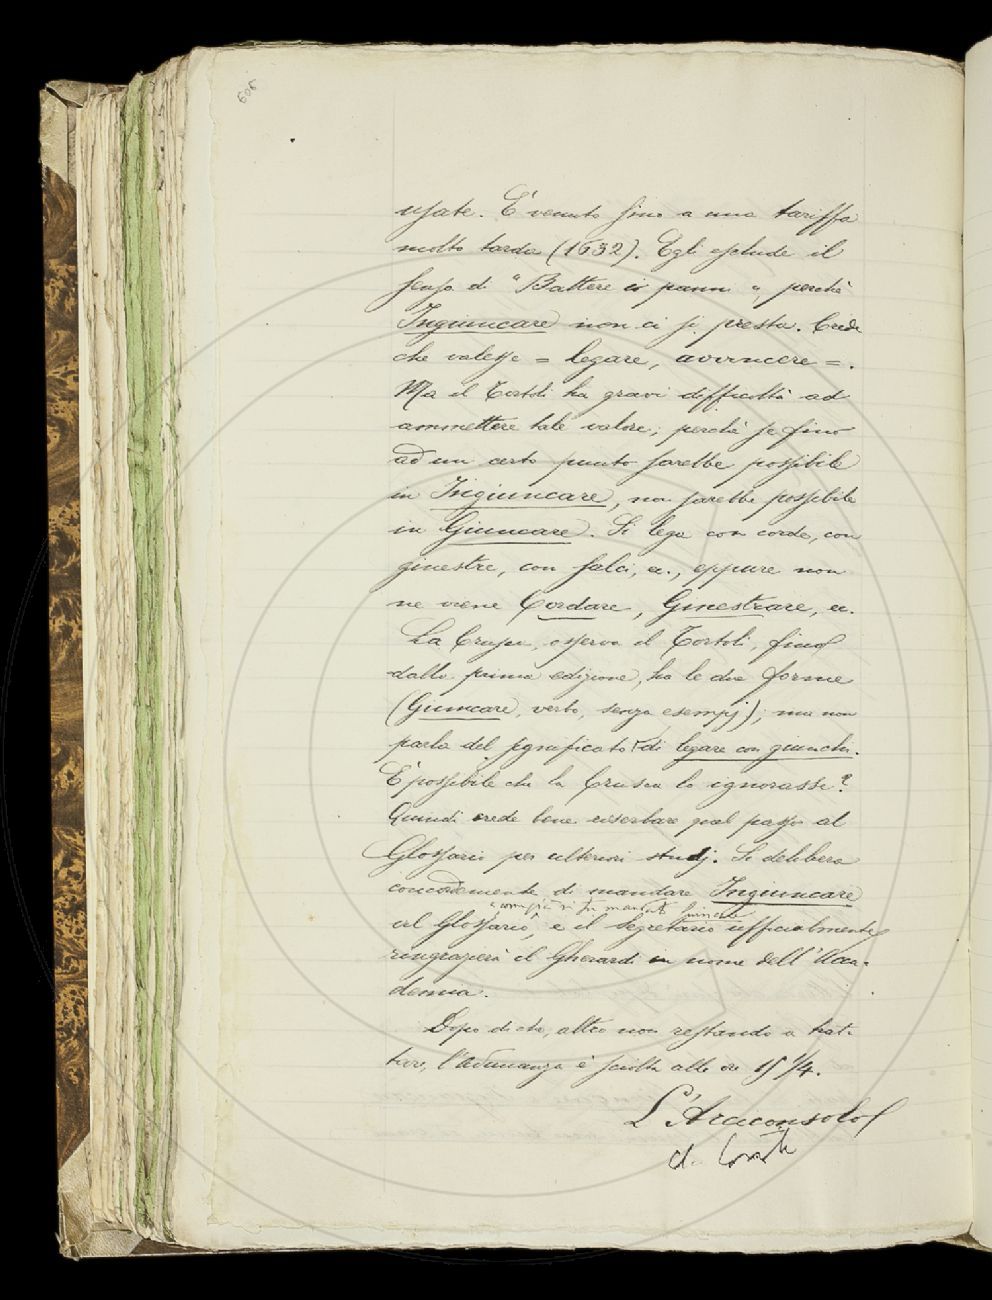 606
usate. È venuto fino a una tariffa
molto tarda (1632). Egli esclude il
senso di "Battere i panni" perchè
Ingiuncare non ci si presta. Crede
che valesse = legare, avvincere =.
Ma il Tortoli ha gravi difficoltà ad
ammettere tale valore; perchè se fino
ad un certo punto sarebbe possibile
in Ingiuncare, non sarebbe possibile
in Giuncare. Si lega con corde, con
ginestre, con salci, ec., eppure non
ne viene Cordare, Ginestrare, ec.
La Crusca, osserva il Tortoli, fino
dalla prima edizione, ha le due forme
(Giuncare, verbo, senza esempj); ma non
parla del significato di legare con giunchi.
È possibile che la Crusca lo ignorasse?
Quindi crede bene riserbare quel passo al
Glossario per ulteriori studj. Si delibera
concordemente di mandare Ingiuncare
al Glossario, e il Segretario ufficialmente
come già vi fu mandato Giuncare
ringrazierà il Gherardi in nome dell'Acca-
demia.
Dopo di che, altro non restando a trat-
tare, l'adunanza è sciolta alle ore 15 1/4.
L'Arciconsolo